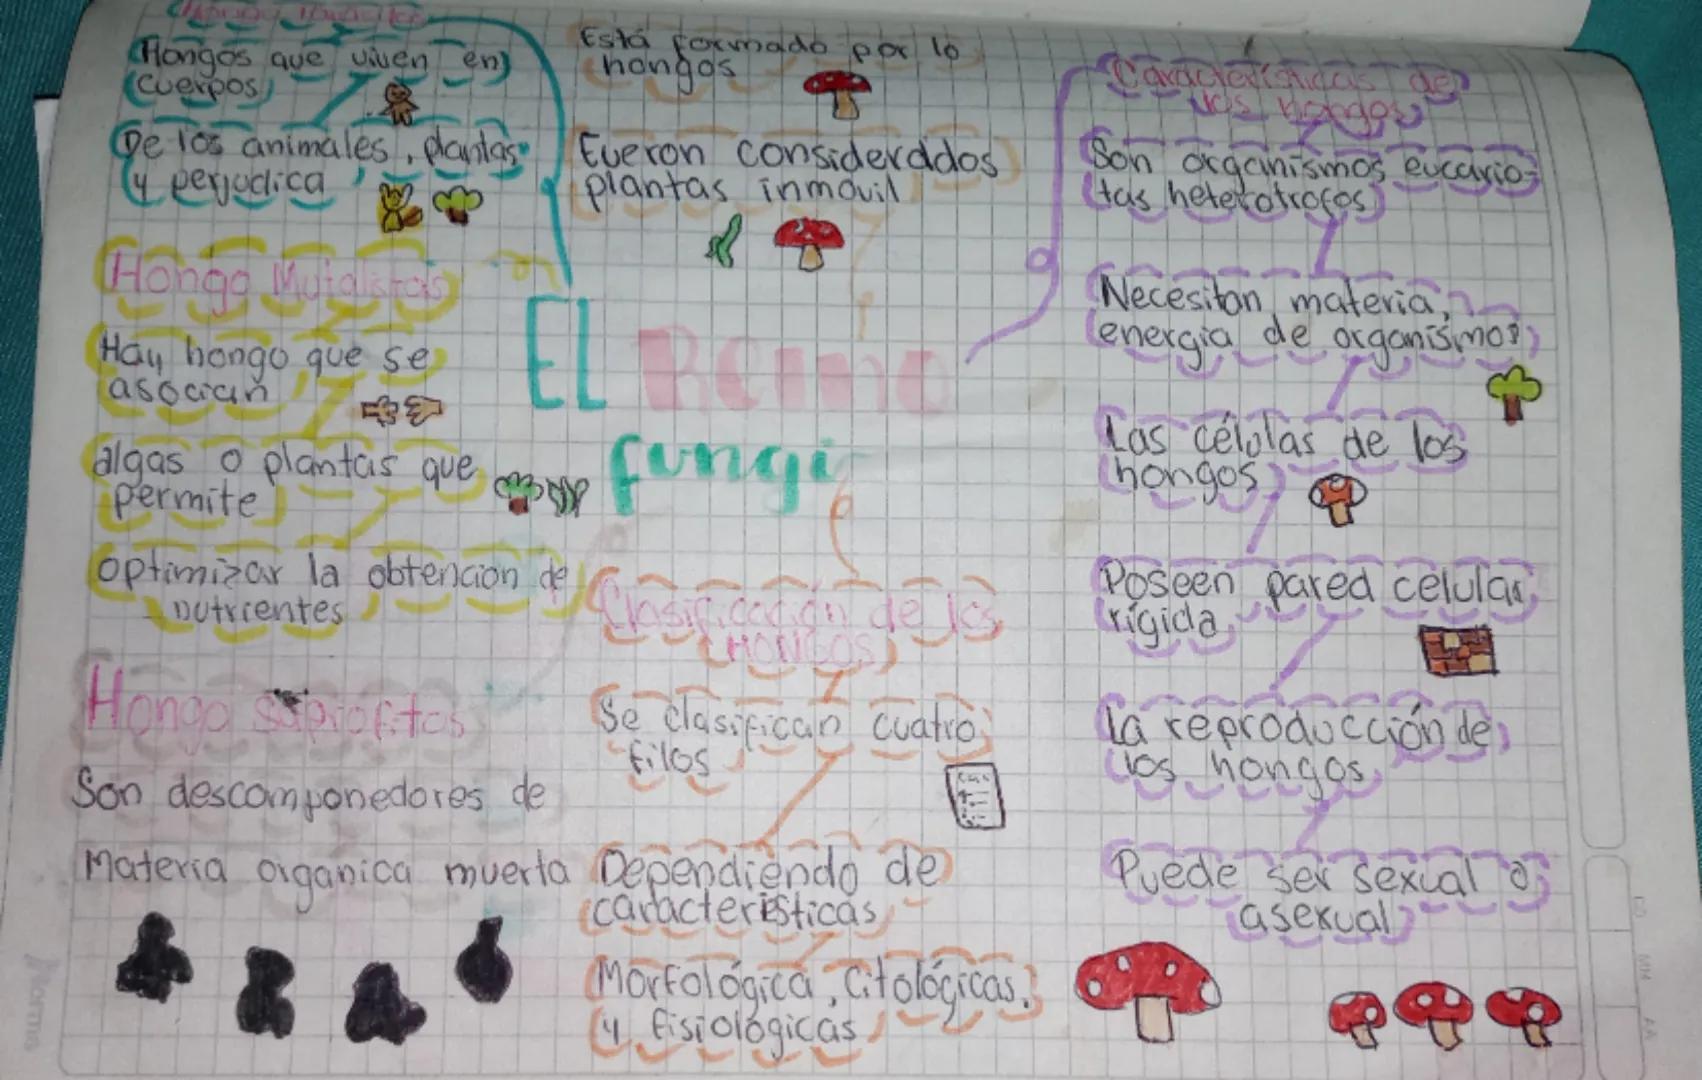 Hongo
Hongos que viven en
cuerpos
De los animales, plantas
y perjudica
Hongo Mutalistas
Hay hongo que se
asocian
algas o plantas que
permite
optimizar la obtencion de
nutrientes
Hongo saprofitos
Son descomponedores de
Materia organica muerta
Está formado por lo
hongos
Fueron considerados
plantas inmovil
EL Reino
fungi
Clasificación de los
HONGOS
Se clasifican cuatro
filos
Dependiendo de
caracteristicas
Morfológica, Citológicas,
y fisiológicas
Características de
los hongos
Son organismos eucario-
tas heterotrofos
Necesitan materia,
energia de organismos
Las células de los
hongos
Poseen pared celular
rígida
La reproducción de
los hongos
Puede ser sexual o
asexual
Norma